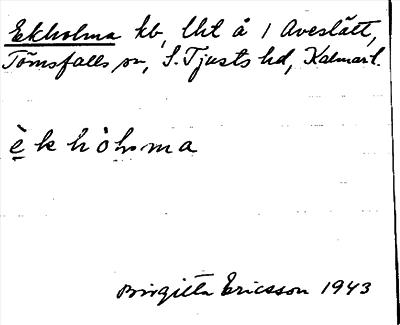 Ekholma kb, lht å 1 Aveslätt,
Törnsfalls sn, S. Tjusts hd, Kalmar l.
è k h ò l m a
Birgitta Ericsson 1943